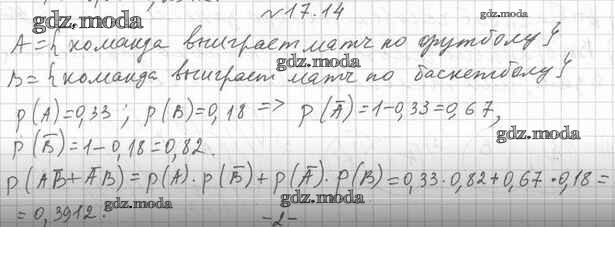 №17.14
A = { команда выиграет матч по футболу }
B = { команда выиграет матч по баскетболу }
p(A)=0,33 ; p(B)=0,18 => p(A̅)=1-0,33=0,67,
p(B̅)=1-0,18=0,82.
p(AB̅+A̅B)=p(A)·p(B̅)+p(A̅)·p(B)=0,33·0,82+0,67·0,18=
=0,3912.
-2-
gdz.moda
gdz.moda
gdz.moda
gdz.moda
gdz.moda
gdz.moda